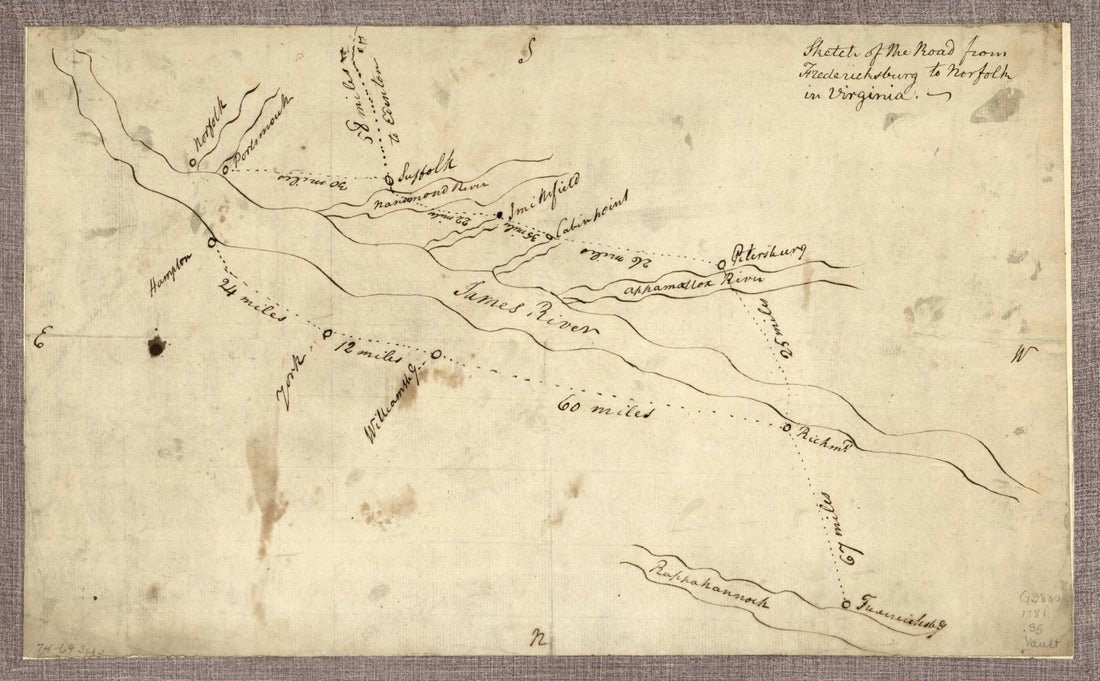 S
Sketch of the Road from
Fredericksburg to Norfolk
in Virginia.
58 miles
to Edenton
Norfolk
Portsmouth
30 miles
Suffolk
Nansemond River
22 miles
Smithfield
35 miles
Cabinpoint
26 miles
Petersburg
Appamattox River
25 miles
James River
Hampton
24 miles
E
W
York
12 miles
Williamsbg
60 miles
Richmd
67 miles
Rappahannock
Fredericksbg
N
G3880
1781
.S5
Vault